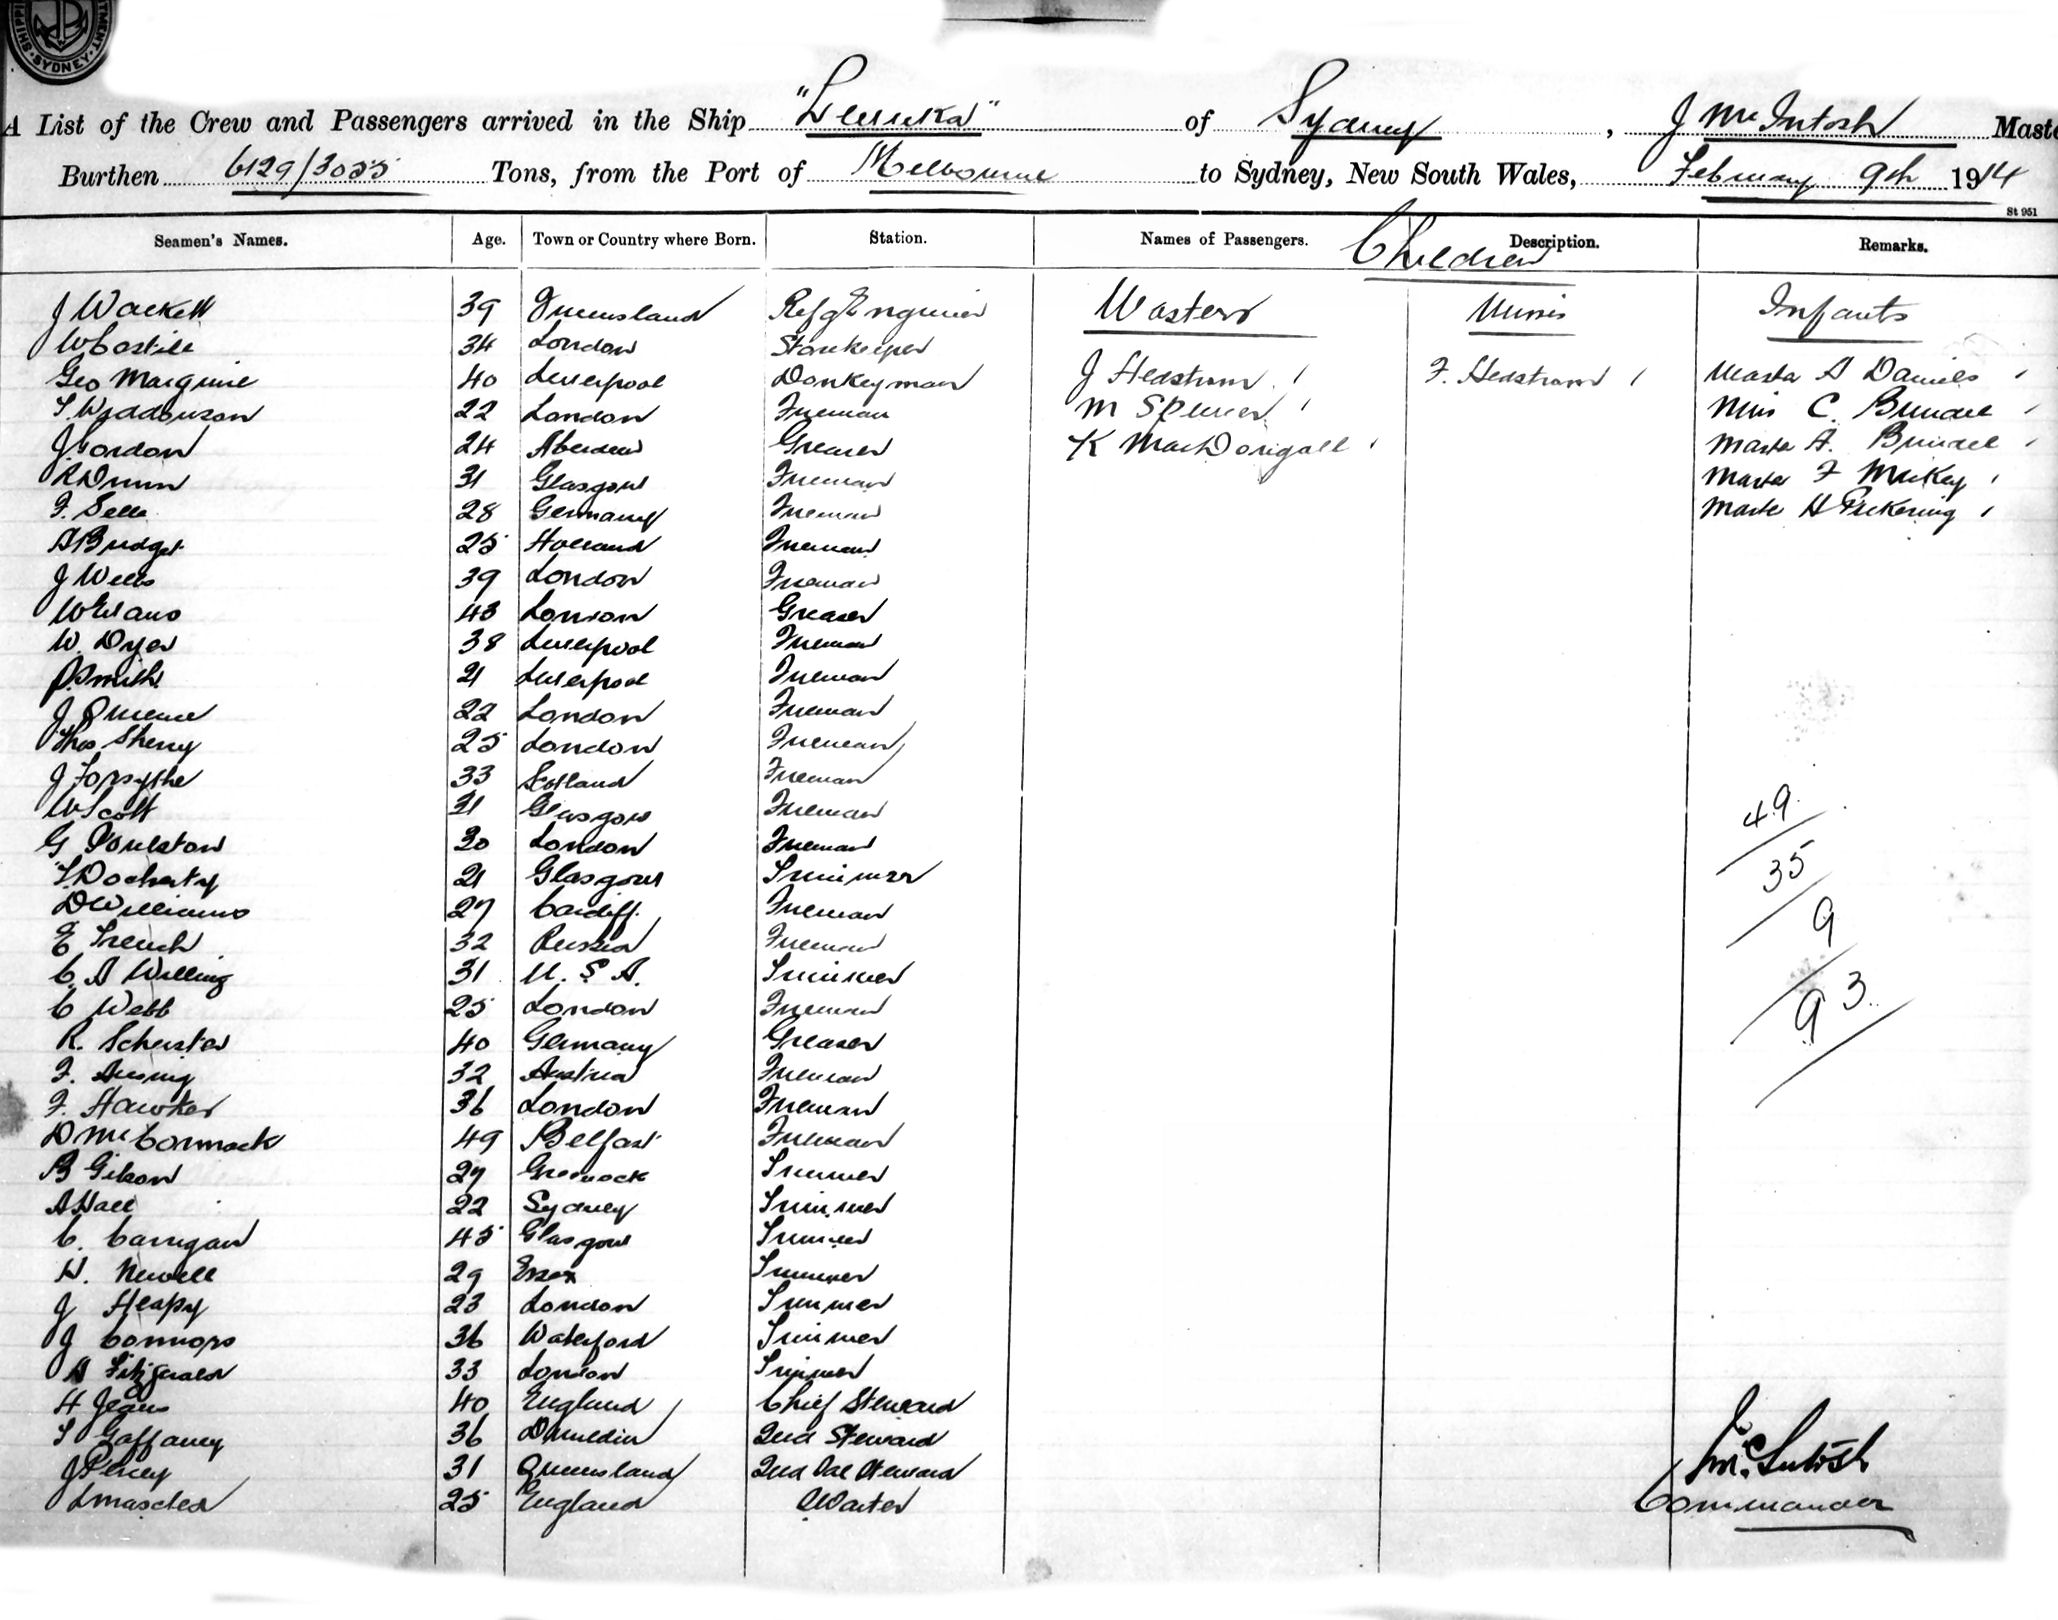 SHIPPI
TMENT. SYDNEY.
A List of the Crew and Passengers arrived in the Ship "Levuka" of Sydney, J McIntosh Maste
Burthen 6129/3055 Tons, from the Port of Melbourne to Sydney, New South Wales, February 9th 1914
St 951
Seamen's Names. Age. Town or Country where Born. Station. Names of Passengers. Children Description. Remarks.
J Wackett 39 Queensland Refg Enginier Masters Misses Infants
W Castile 34 London Storekeeper
Geo Macguire 40 Liverpool Donkeyman J Hedstrom 1 F. Hedstrom 1 Master A Daniels 1
T. Widdowson 22 London Fireman M Spencer 1 Miss C. Brindle 1
J. Gordon 24 Aberdeen Greaser K MacDougall 1 Master A. Brindle 1
R Dunn 31 Glasgow Fireman Master F McKey 1
F. Selle 28 Germany Fireman Master H Pickering 1
A Bridget 25 Holland Fireman
J Wells 39 London Fireman
W Evans 43 London Greaser
W. Dyer 38 Liverpool Fireman
P. Smith 21 Liverpool Fireman
J 22 London Fireman
Thos Sherry 25 London Fireman
J Forsythe 33 Scotland Fireman
W Scott 31 Glasgow Fireman
G Poulston 30 London Fireman
T. Docherty 21 Glasgow Trimmer
D Williams 27 Cardiff. Fireman
E French 32 Russia Fireman
C. A Willing 31 U. S A. Trimmer
C Webb 25 London Fireman
R. Schuster 40 Germany Greaser
F. 32 Austria Fireman
F. Hawker 36 London Fireman
D McCormack 49 Belfast Fireman
B Gibson 27 Greenock Trimmer
A Hall 22 Sydney Trimmer
C. Carrigan 45 Glasgow Trimmer
H. Newell 29 Essex Trimmer
J Heapy 23 London Trimmer
J Connors 36 Waterford Trimmer
A Fitzgerald 33 London Trimmer
H Jeans 40 England Chief Steward
T Gaffaney 36 Dunedin 2nd Steward
J Percy 31 Queensland 2nd Sal Steward
L Mascled 25 England Waiter
49
35
9
93
J McIntosh
Commander